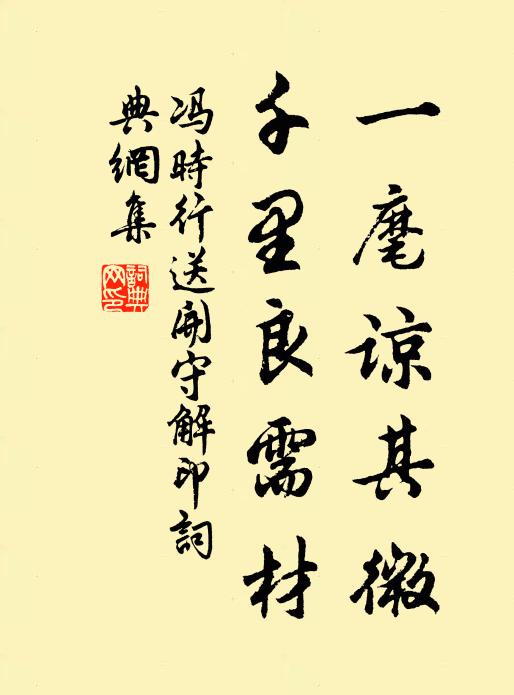 一麾谅其微
千里良需材
冯時行送開守解印詞
典網集
詞典網印